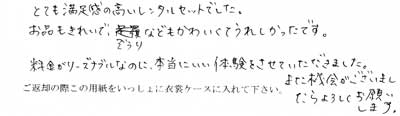 とても満足感の高いレンタルセットでした。
お品もきれいで、などもかわいくてうれしかったです。
ぞうり
料金がリーズナブルなのに、本当にいい体験をさせていただきました。
また機会がございまし
たらよろしくお願い
します。
ご返却の際この用紙をいっしょに衣裳ケースに入れて下さい。